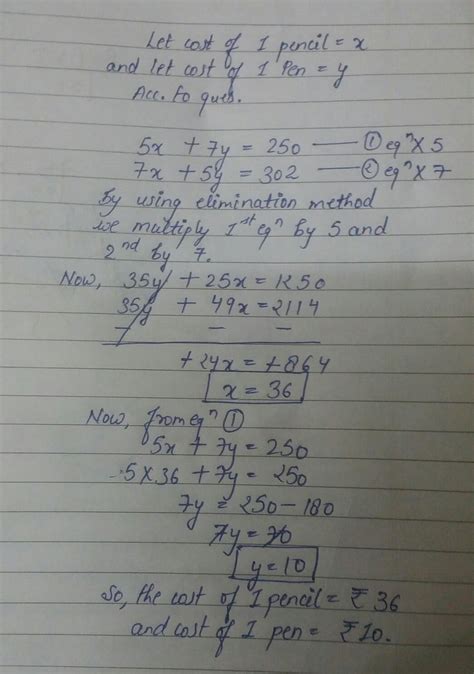 Let cost of 1 pencil = x
and let cost of 1 Pen = y
Acc. to ques.
5x + 7y = 250 —— ① eqⁿ X 5
7x + 5y = 302 —— ② eqⁿ X 7
By using elimination method
we multiply 1ˢᵗ eqⁿ by 5 and
2ⁿᵈ by 7.
Now, 35y + 25x = 1250
35y + 49x = 2114
− − −
+24x = +864
x = 36
Now, from eqⁿ ①
5x + 7y = 250
5 X 36 + 7y = 250
7y = 250 − 180
7y = 70
y = 10
So, the cost of 1 pencil = ₹ 36
and cost of 1 pen = ₹ 10.